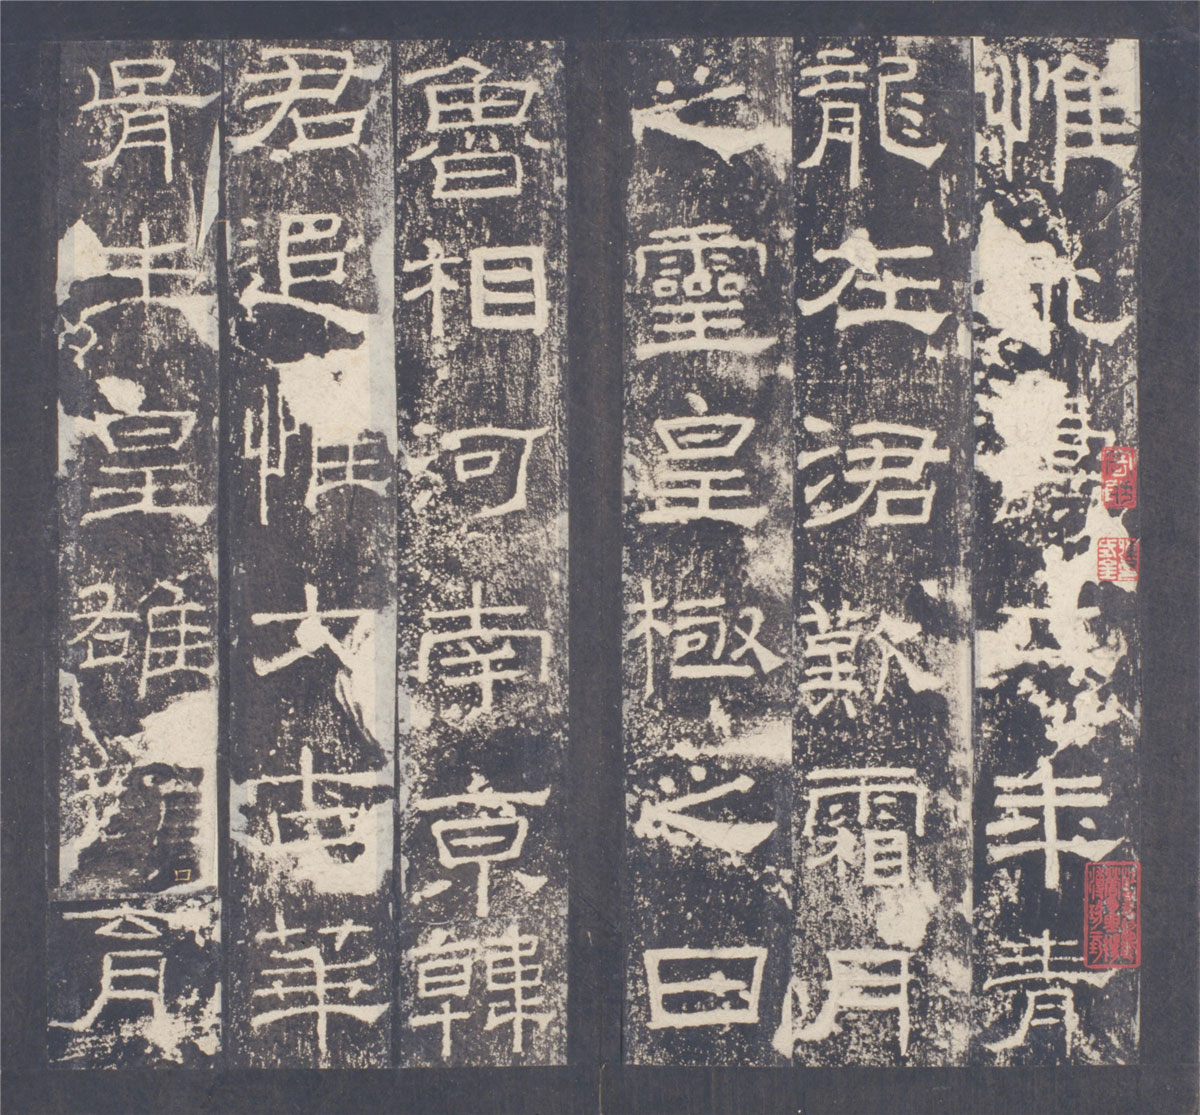 惟永壽二年青
龍在涒歎霜月
之靈皇極之日
魯相河南京韓
君追惟大古華
胥生皇雄顏口育